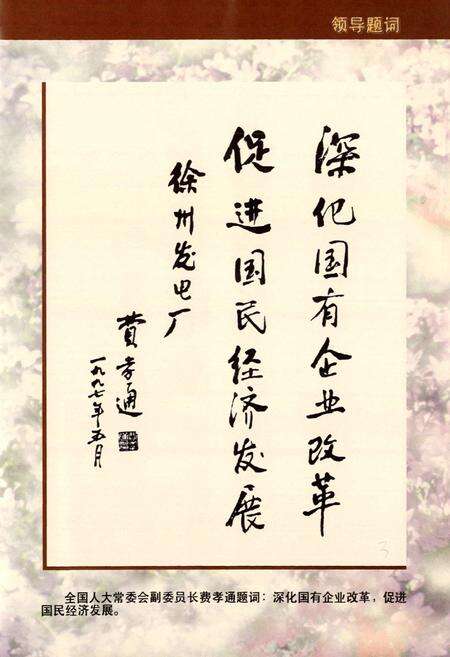 领导题词
深化国有企业改革
促进国民经济发展
徐州发电厂
费孝通
一九九七年五月
全国人大常委会副委员长费孝通题词：深化国有企业改革，促进
国民经济发展。